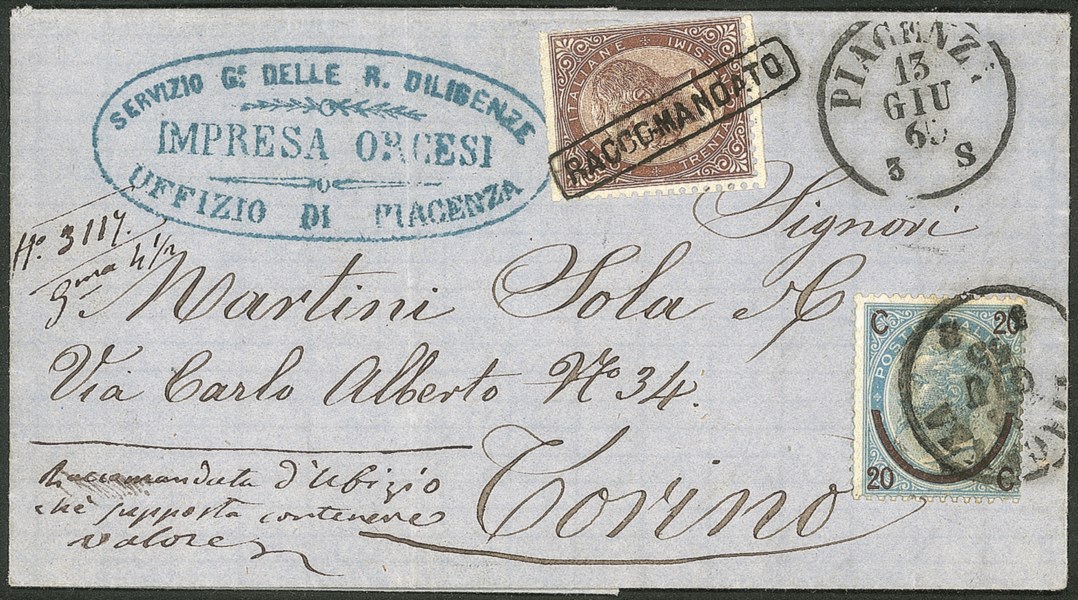 SERVIZIO Gᵉ. DELLE R. DILIGENZE
IMPRESA ORCESI
UFFIZIO DI PIACENZA
ITALIANE
TRENTA
RACCOMANDATO
PIACENZA
13
GIU
65
3 S
No. 3117.
4 1/2
Signori
Martini Sola & C
Via Carlo Alberto No 34.
Torino
Raccomandata d'Ufizio
chè supposta contenere
valore
C 20
POST
20 C